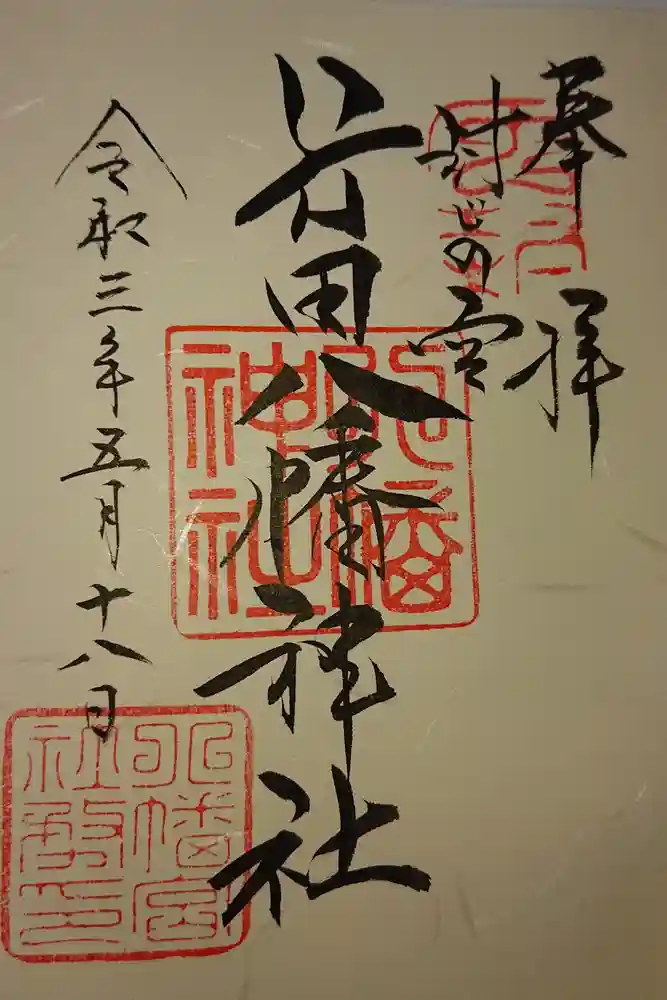 奉拝
封じの宮
行田八幡神社
令和三年五月十八日
八幡宮
社務印